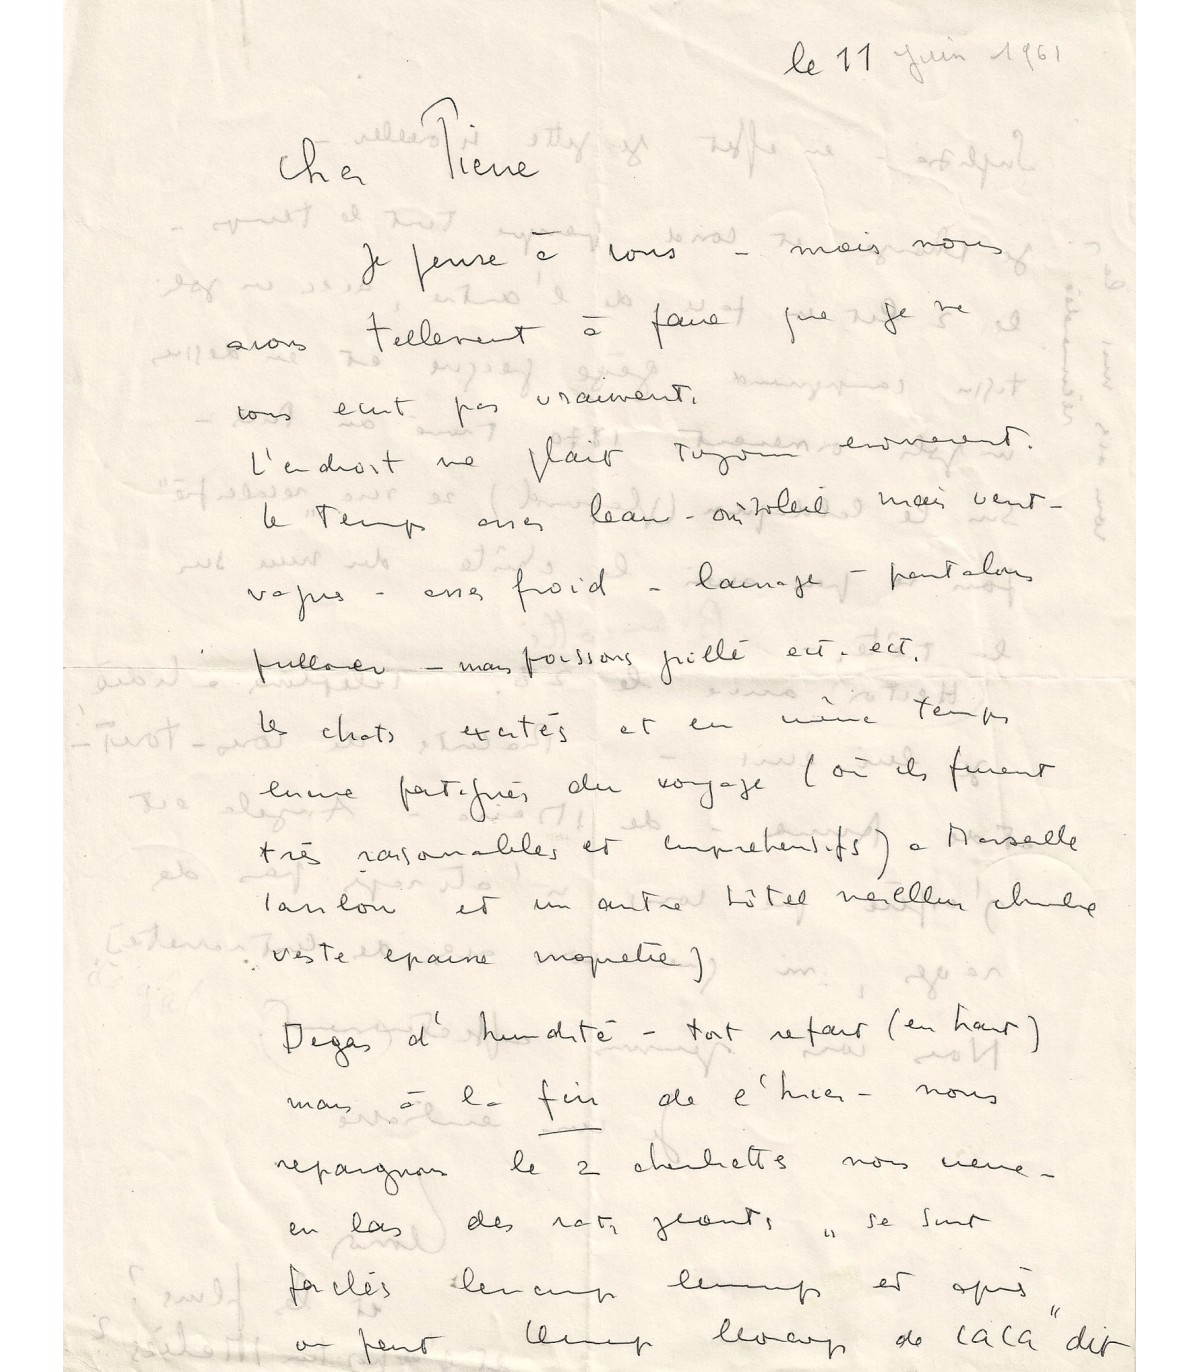 le 11 juin 1961
cher Pierre
Je pense à vous - mais nous
avons tellement à faire que je ne
vous ecrit pas vraiment.
L'endroit me plait toujours enormement.
le Temps assez beau - soleil mais vent -
vagues - assez froid - lainage - pantalons
pullover - mais poissons grillé ect. ect.
les chats excités et en même temps
encore fatigués du voyage (où ils furent
très raisonnables et comprehensifs) a Marseille
et un autre hôtel meilleur chambre
vaste epaisse moquette)
Degas d'humidité - tout refait (en haut)
mais à la fin de l'hiver - nous
repaignons le 2 chambrettes nous meme -
en bas des rats geants „ se sont
beaucoup beaucoup et après
on peut beaucoup beaucoup de caca" dit